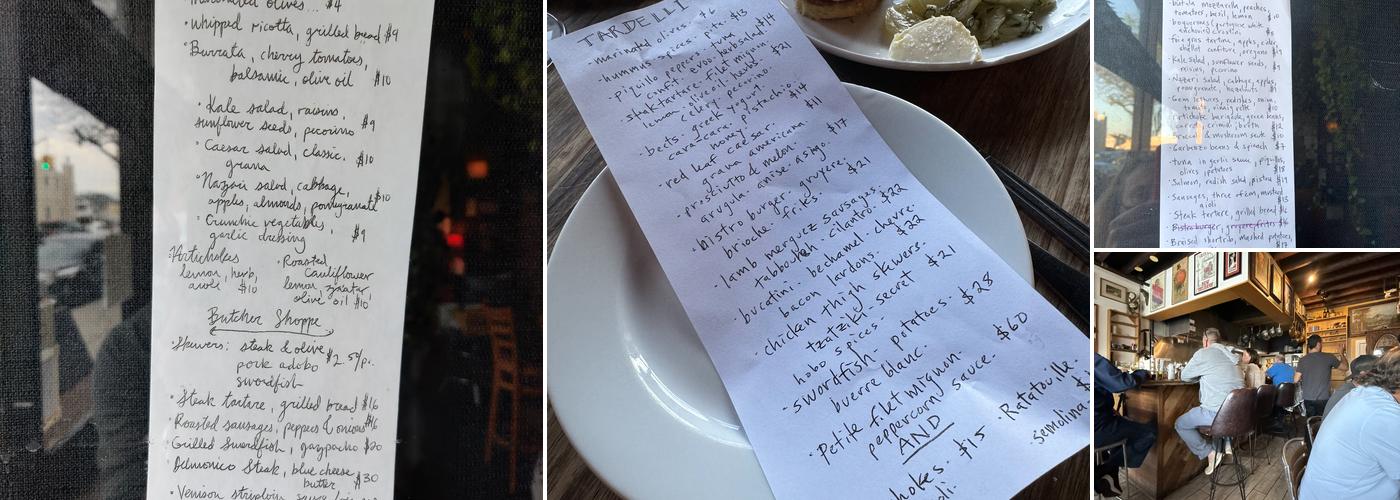 olives... $4
• whipped ricotta, grilled bread $9
• Burrata, cherry tomatoes,
balsamic, olive oil $10
• Kale salad, raisins,
sunflower seeds, pecorino $9
• Caesar salad, classic,
grana $10
• Nazari salad, cabbage,
apples, almonds, pomegranate $10
• Crunchie vegetables,
garlic dressing $9
• Artichokes
lemon, herb,
aioli $10
• Roasted
Cauliflower
lemon, zaatar
olive oil $10
Butcher Shoppe
• Skewers: steak & olive
pork adobo
swordfish
$2.50/p.
• Steak tartare, grilled bread $16
• Roasted sausages, peppers & onions $16
• Grilled Swordfish, gazpacho $20
• Delmonico Steak, blue cheese
butter $30
• Venison striploin, sauce
TARDELLI
• marinated olives. $6
• hummus. spices. pita. $13
• piquillo peppers. tuna
confit. evoo. herb salad. $14
• steak tartare. filet mignon.
lemon. olive oil. herbs. $21
celery. pecorino.
• beets. greek yogurt.
cara-cara. pistachio.
honey. $14
• red leaf caesar.
grana americana. $11
• prosciutto & melon.
arugula. anise. asiago. $17
• bistro burger. gruyere.
brioche. frites. $21
• lamb merguez sausages.
tabbouleh. cilantro. $22
• bucatini. bechamel. chevre.
bacon lardons. $22
• chicken thigh skewers.
tzatziki. secret
hobo spices. $21
• swordfish. potatoes.
buerre blanc. $28
• Petite filet mignon.
peppercorn sauce. $60
AND
hokes. $15
oli.
• Ratatouille.
• Semolina
mozzarella, peaches,
tomatoes, basil, lemon $10
boquerones (portugese white
anchovies) crostini $9
foie gras tartine, apples, cider,
shallot confiture, oregano $19
Kale salad, sunflower seeds,
raisins, pecorino $9
Nazari salad, cabbage, apples,
pomegranate, hazelnuts
Gem lettuces, radishes, mint,
tomato, vinaigrette $10
Artichoke barigoule, green beans,
carrot, crimini, broth $12
& mushroom sauté $10
Garbanzo beans & spinach $7
• tuna in garlic sauce, piquillos,
olives, potatoes $18
• Salmon, radish salad, pistou $19
• Sausages, three of em, mustard
aioli $13
• Steak tartare, grilled bread $16
• Bistro burger, gruyere, frites $16
• Braised shortrib, mashed potatoes,